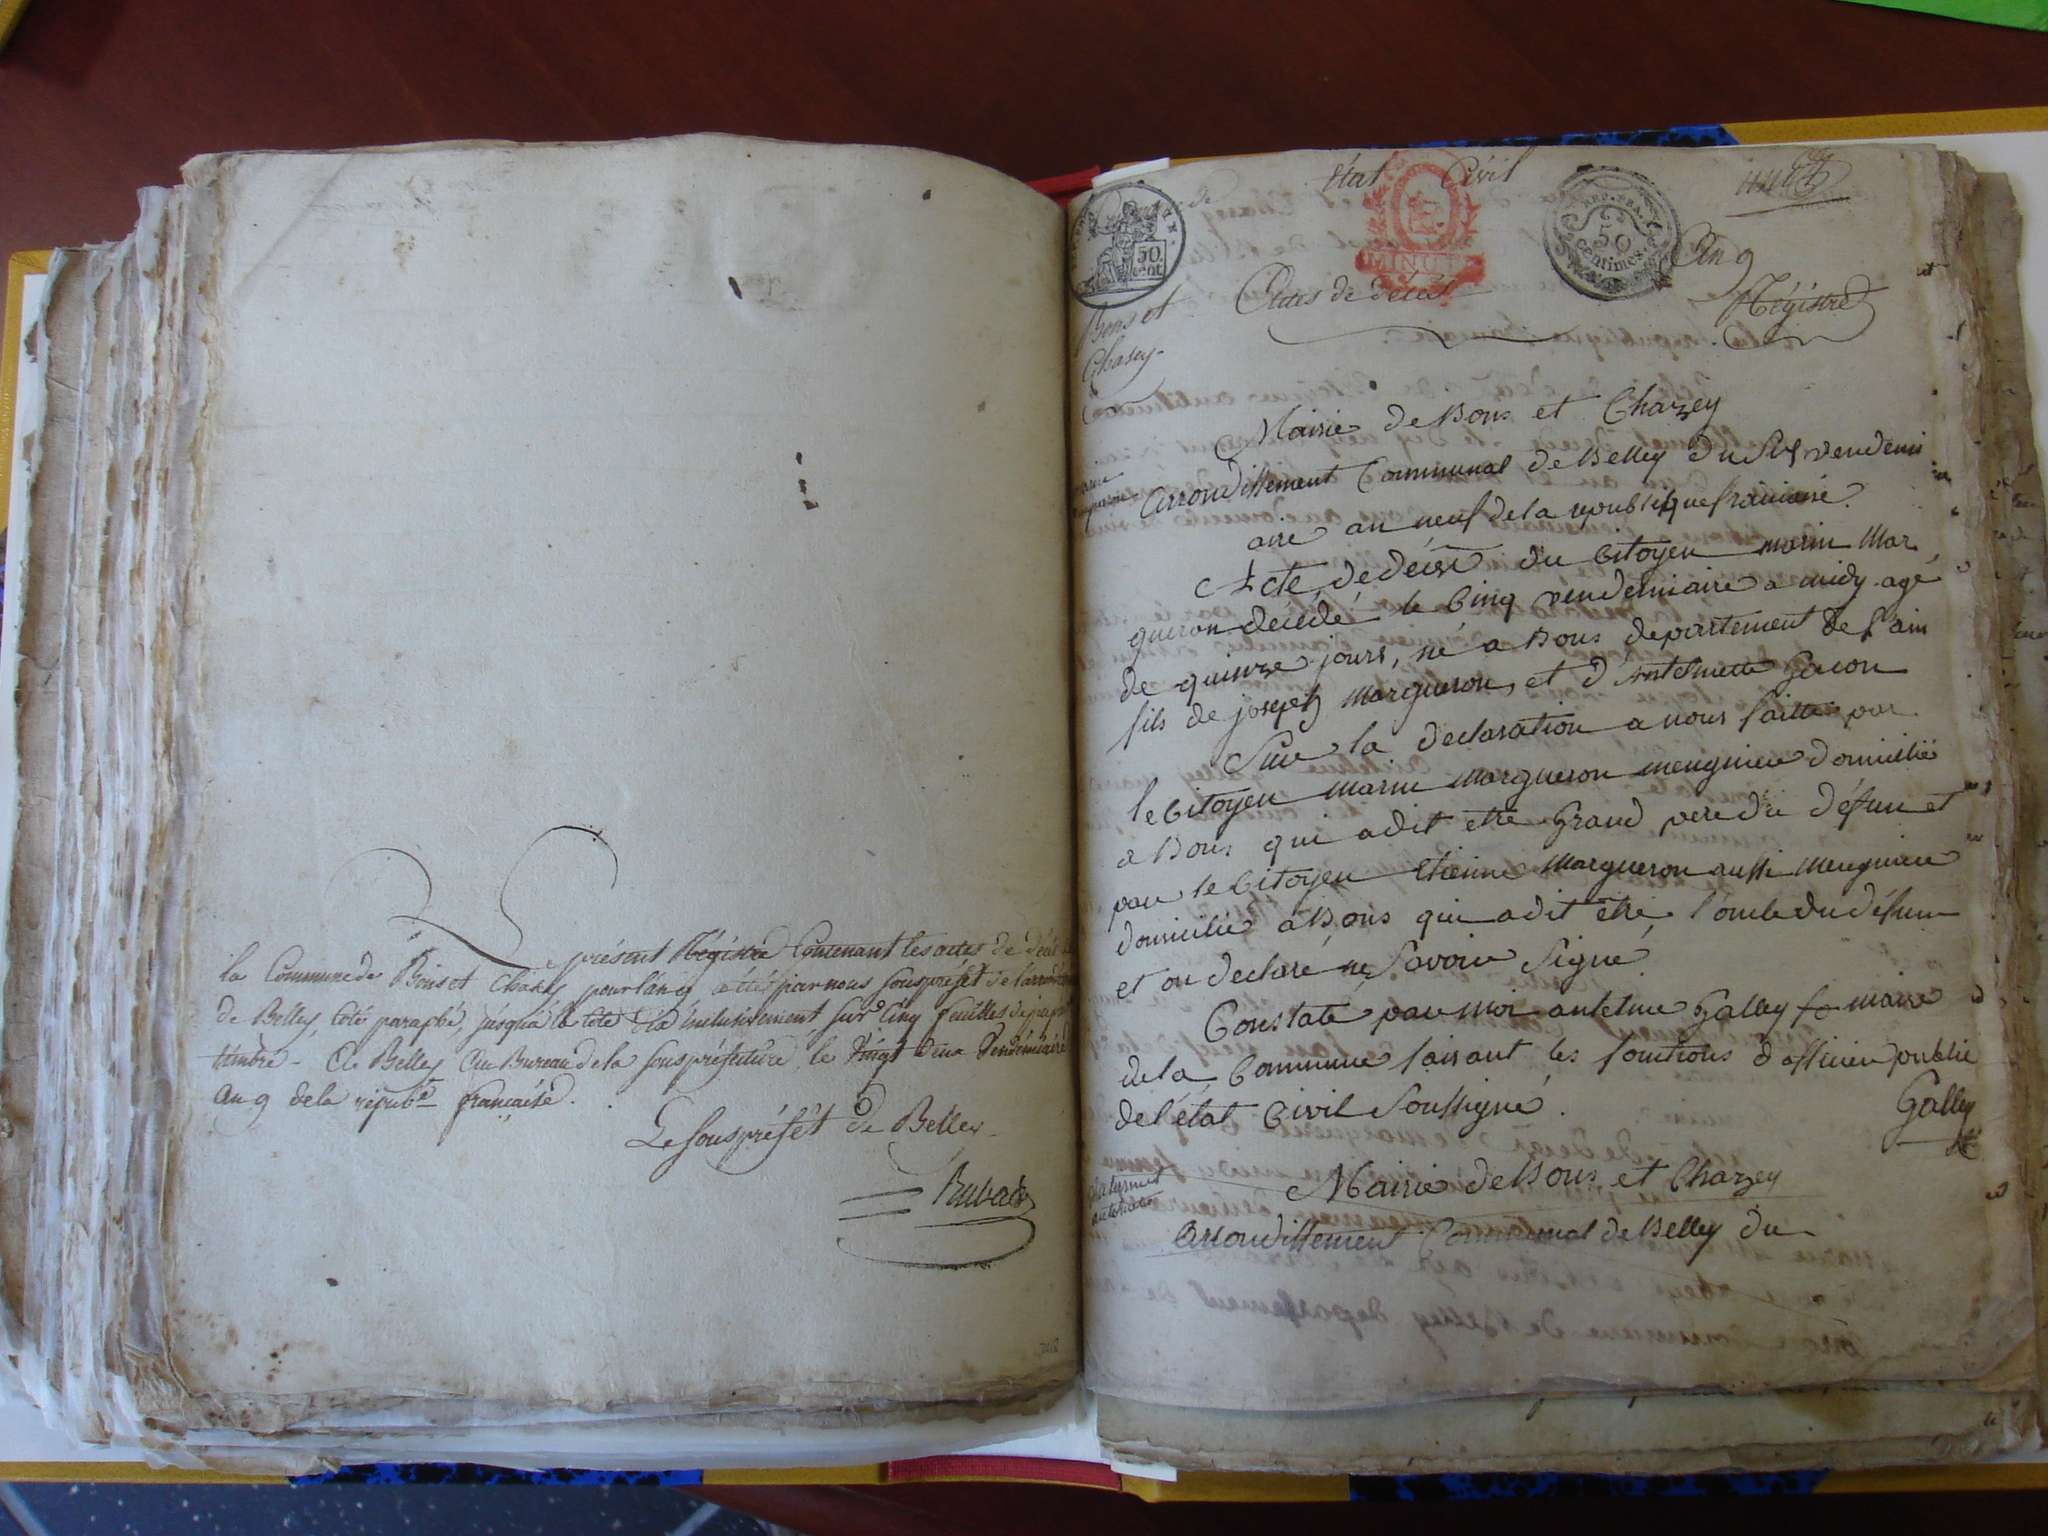 présent Régistre Contenant les actes de décès
la Commune de Bons et Chasey pour l'an 9 a été par nous sous préfêt de l'arrond
de Belley, coté paraphé, jusqu'à la cote inclusivement sur Cinq feuilles de papier
timbre - A Belley Au Bureau de la sous préfecture, le Vingt deux Vendémiaire
An 9 de la répub.e française.
Le sous préfêt de Belley
Rubat
État Civil
MINUTE
REP. FRA.
50
centimes
50
cent
An 9
Bons et
Chasey
Actes de décès
Régistre
Mairie de Bons et Chazey
Arrondissement Communal de Belley du Six vendemi
aire an neuf de la republique francaise.
Acte de décès du Citoyen marin Mar
gueron décédé le Cinq vendemiaire a midy agé
de quinze jours, né a Bons departement de l'ain
fils de joseph margueron, et d'Antelmette Gacon
Sur la declaration a nous faitte par
le Citoyen marin margueron meugnier domicilié
a Bons qui a dit etre Grand pere du défun et
par le Citoyen Etienne Margueron aussi meugnier
domicilié a Bons qui a dit etre, l'oncle du défun
et on declaré ne Savoir Signé.
Constaté par moi antelme Galley maire
de la Commune faisant les fonctions d'officier public
de l'état Civil Soussigné.
Galley
Mairie de Bons et Chazey
Arrondissement Communal de Belley du